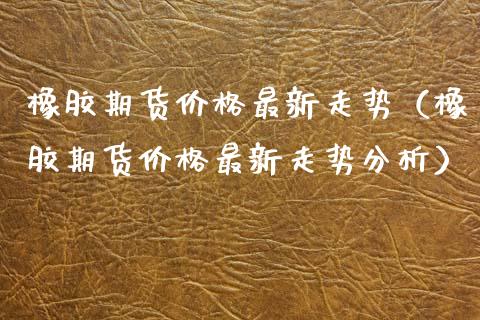 橡胶期货价格最新走势（橡
胶期货价格最新走势分析）